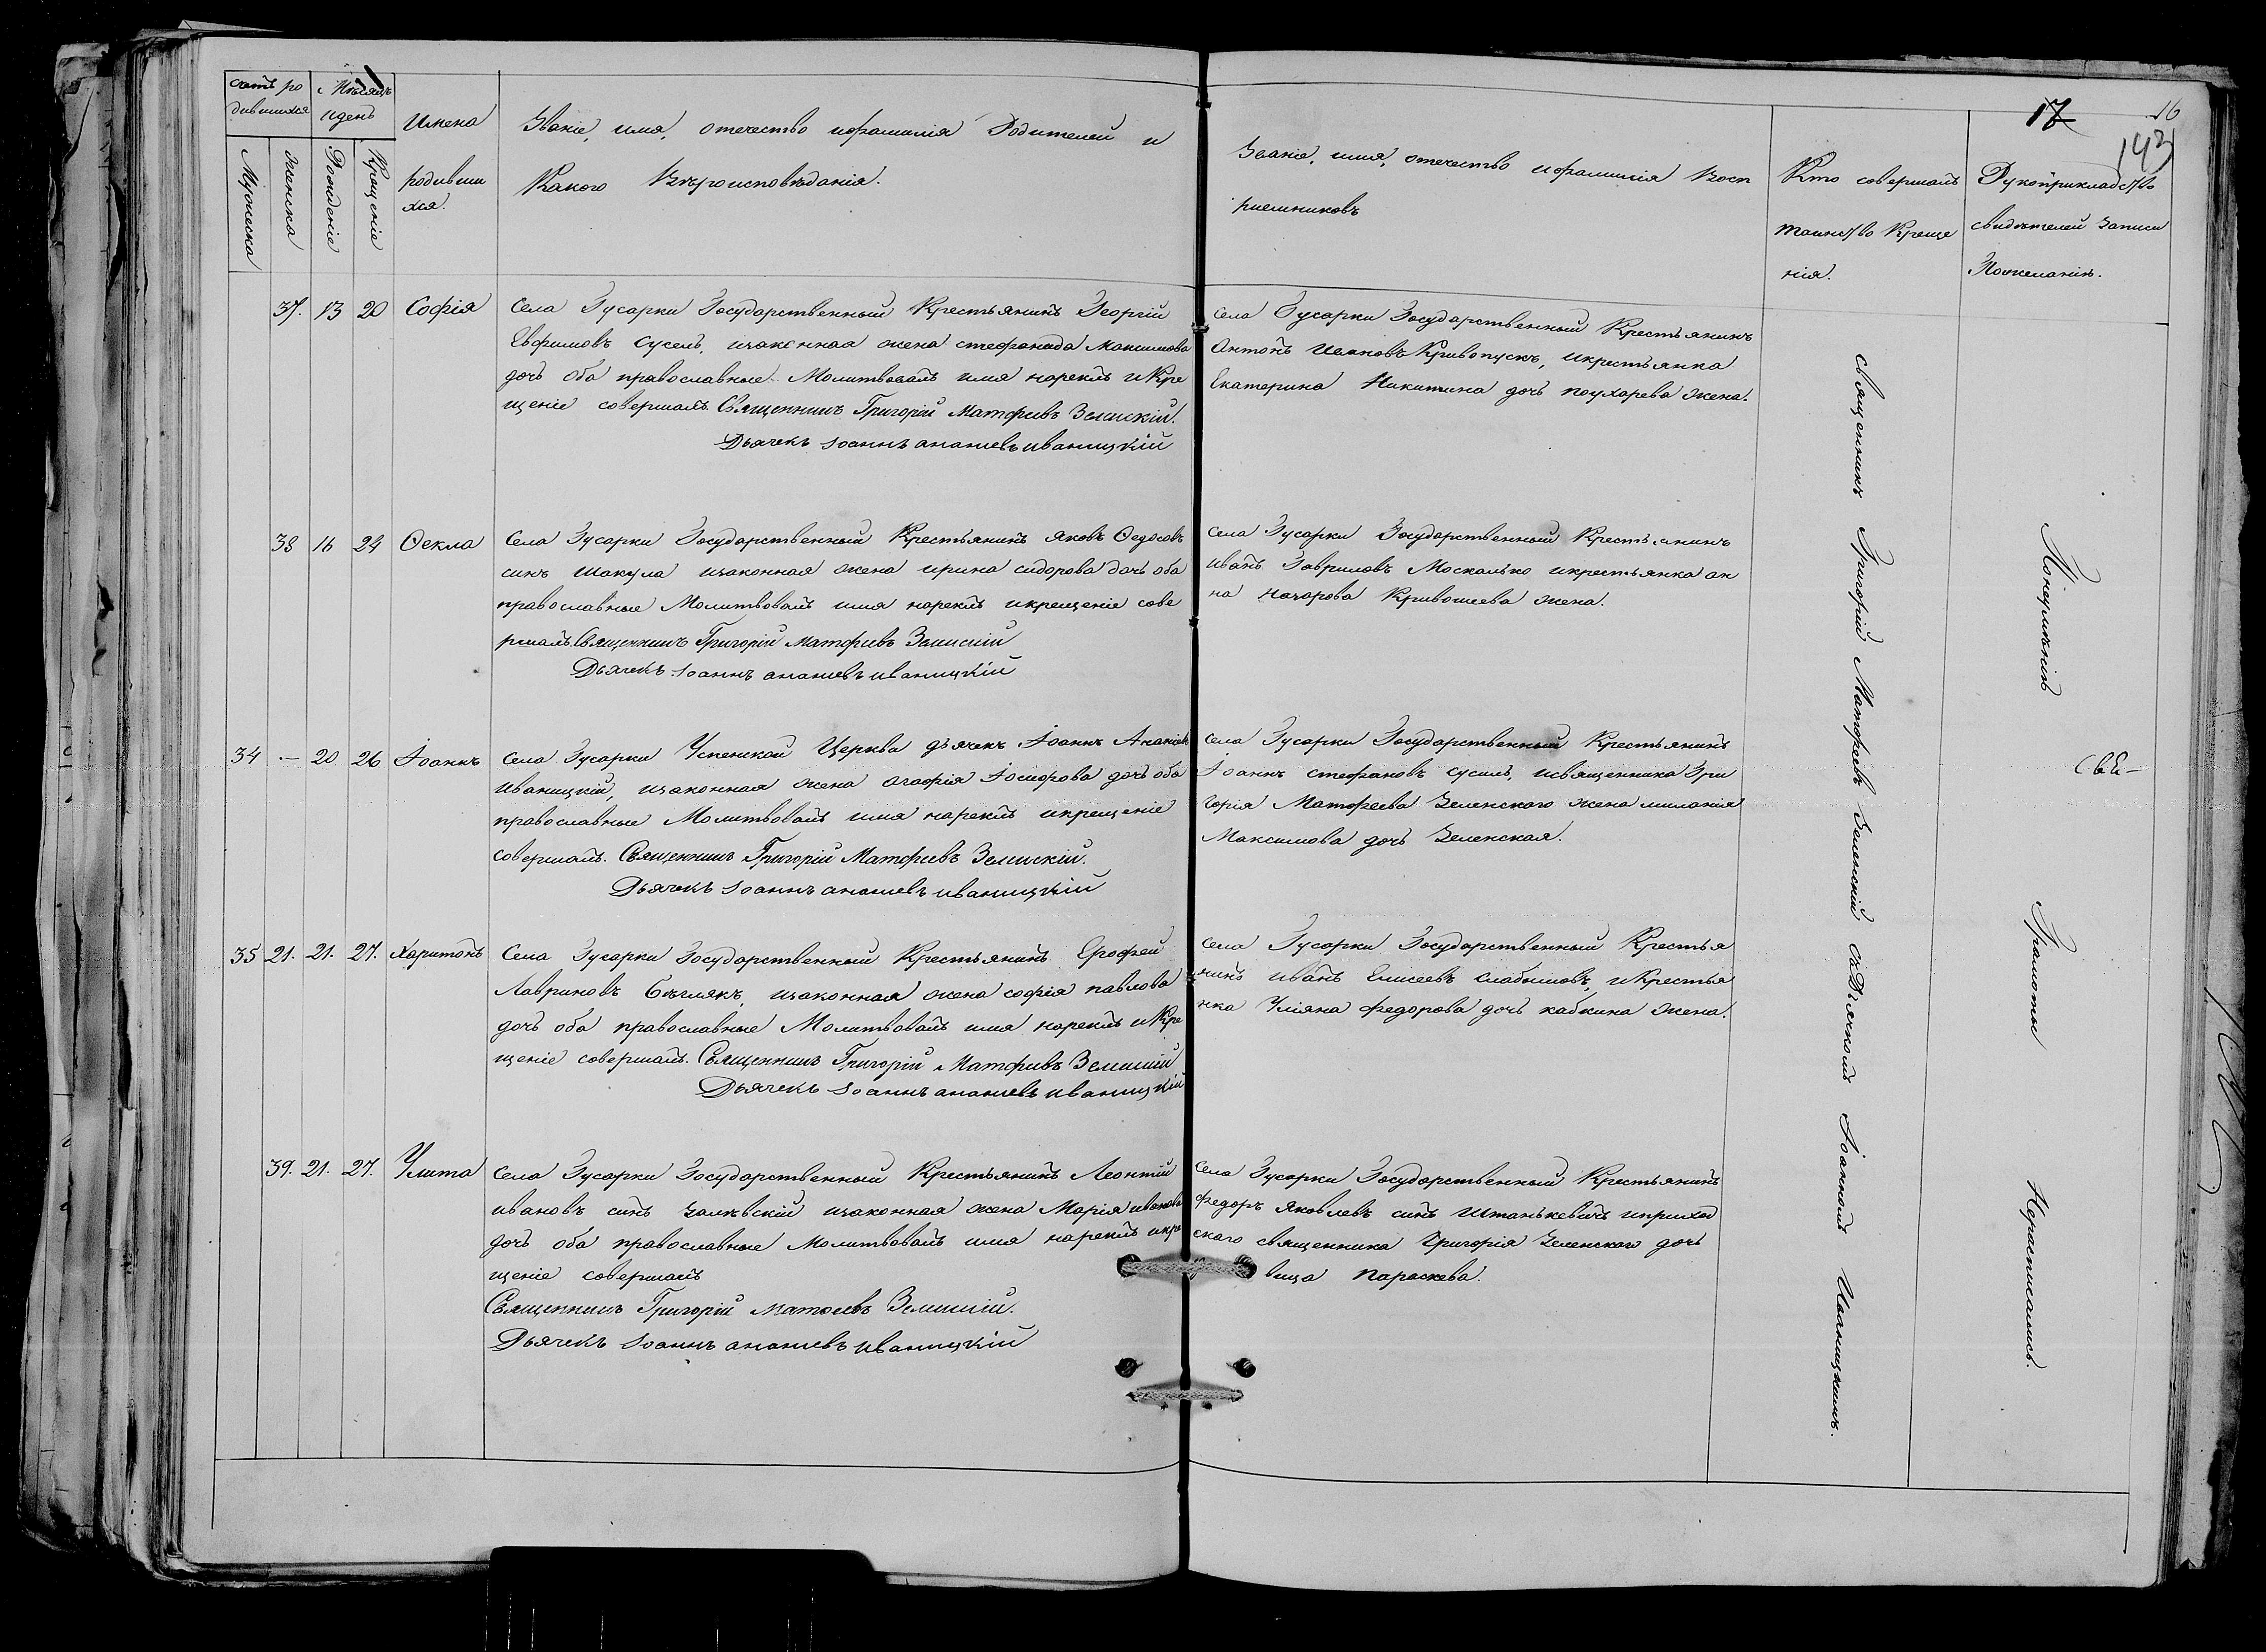 17
16
143
счетъ ро
дившихся
Мѣсяцъ
и день
Имена
родивши
хся.
Мужеска
Женска
Рожденіе
Крещеніе
Званіе, имя, отечество и фамилія Родителей и
Какого Вѣроисповѣданія.
Званіе, имя, отечество и фамилія Восп
риемниковъ
Кто совершалъ
таинство Креще
нія.
Рукоприкладство
свидѣтелей записи
По желанію.
37. 13 20 Софія
Села Гусарки Государственный Крестьянинъ Георгій
Евфимовъ Сусель, и законная жена стефанида Максимова
дочь оба православные. Молитвовалъ имя нарекъ и Кре
щеніе совершалъ. Священникъ Григорій Матфиевъ Зелинскій.
Дьячекъ Іоаннъ ананиевъ иваницкій
села Гусарки Государственный Крестьянинъ
Антонъ Ивановъ Кривопускъ, и крестьянка
Екатерина Никитина дочь поухарева жена.
38 16 24 Ѳекла
Села Гусарки Государственный Крестьянинъ яковъ Ѳедосовъ
синъ Шакула и законная жена ирина сидорова дочь оба
православные Молитвовалъ имя нарекъ и крещеніе сове
ршалъ. Священникъ Григорій Матфиевъ Зелинскій
Дьячекъ Іоаннъ ананиевъ иваницкій
села Гусарки Государственный Крестьянинъ
иванъ Гавриловъ Москалько и крестьянка ан
на Назарова Кривошеева жена.
34 — 20 26 Іоаннъ
села Гусарки Успенской Церкви дьячекъ Іоаннъ Ананіевъ
иваницкій, и законная жена агафія Іосифова дочь оба
православные Молитвовалъ имя нарекъ и крещеніе
совершалъ. Священникъ Григорій Матфиевъ Зелинскій.
Дьячекъ Іоаннъ ананиевъ иваницкій
села Гусарки Государственный Крестьянинъ
Іоаннъ стефановъ сусиль, и священника Гри
горія Матфеева Зеленского жена миланія
Максимова дочь Зеленская.
35 21. 21. 27. Харитонъ
Села Гусарки Государственный Крестьянинъ Ерофей
Лавриновъ Бѣглякъ, и законная жена софія павлова
дочь оба православные Молитвовалъ имя нарекъ и Кре
щеніе совершалъ. Священникъ Григорій Матфивъ Зелинскій
Дьячекъ Іоаннъ ананиевъ иваницкій
села Гусарки Государственный Крестья
нинъ иванъ Елисеевъ слабишовъ, и Крестья
нка Уліяна федорова дочь кабкина жена.
39. 21. 27. Улита
села Гусарки Государственный Крестьянинъ Леонтій
ивановъ синъ залѣвскій и законная жена Марія иванова
дочь оба православные Молитвовалъ имя нарекъ и кре
щеніе совершалъ
Священникъ Григорій Матвеевъ Зелинскій.
Дьячекъ Іоаннъ ананиевъ иваницкій
села Гусарки Государственный Крестьянинъ
федоръ яковлевъ синъ Штанькевичъ и приход
ского священника Григорія Зеленского дочь
вица Параскева.
священникъ Григорій Матфеевъ Зеленскій съ Дьячкомъ Іоанномъ Иваницкимъ.
Понеумѣнію
Грамоты
Нерасписались.